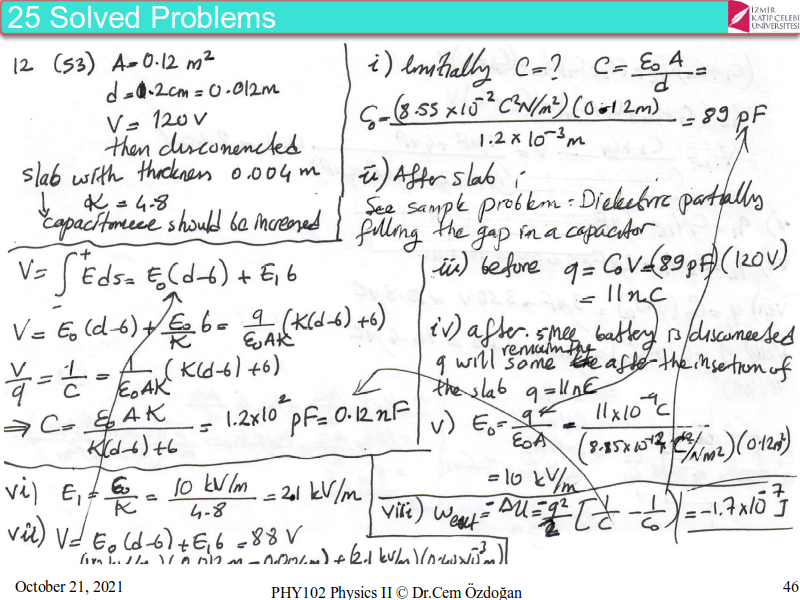 25 Solved Problems
İZMİR
KATİP ÇELEBİ
ÜNİVERSİTESİ
12 (53) A=0.12 m²
d=1.2cm=0.012m
V= 120V
then disconencted
slab with thickness 0.004 m
K = 4.8
capacitance should be increased
i) Initially C=? C= ε₀ A / d =
C₀= (8.55 x10⁻² C²N/m²) (0.12m) / 1.2 x 10⁻³m = 89 pF
ii) After slab ;
See sample problem: Dielectric partially
filling the gap in a capacitor
V= ∫ E ds= E₀(d-b) + E₁ b
V= E₀ (d-b) + E₀/K b= q/ε₀AK (K(d-b)+b)
V/q = 1/C = 1/ε₀AK (K(d-b)+b)
⇒ C= ε₀ A K / K(d-b)+b = 1.2x10² pF= 0.12 nF
iii) before q= C₀V=(89pF)(120V)
= 11 nC
iv) after. since battery is disconnected
q will remaining some after the insertion of
the slab q=11nC
v) E₀= q/ε₀A = 11 x10⁻⁹C / (8.85x10⁻¹² C²/Nm²)(0.12m²)
= 10 kV/m
vi) E₁ = E₀/K = 10 kV/m / 4.8 = 2.1 kV/m
vii) V= E₀ (d-b)+E₁b = 88 V
viii) Wext = ΔU= q²/2 [1/C - 1/C₀] = -1.7x10⁻⁷ J
October 21, 2021
PHY102 Physics II © Dr.Cem Özdoğan
46